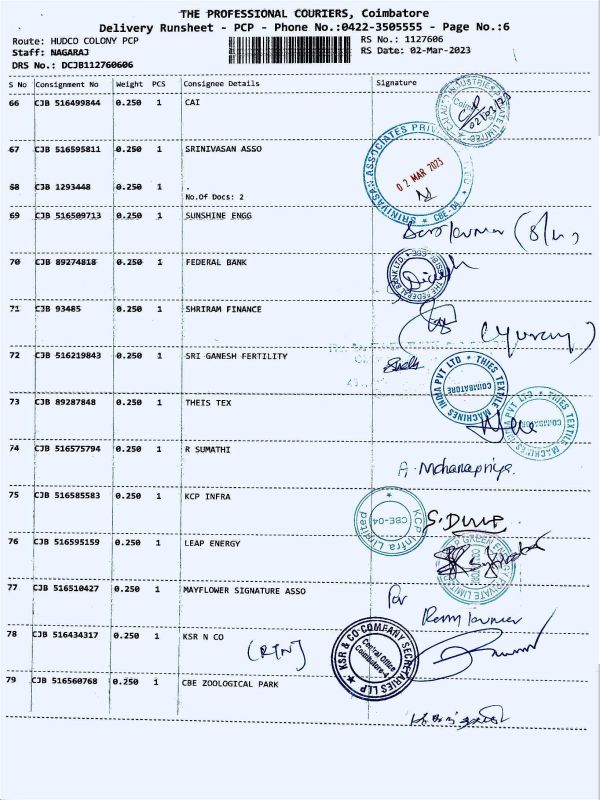 THE PROFESSIONAL COURIERS, Coimbatore
Delivery Runsheet - PCP - Phone No.:0422-3505555 - Page No.:6
Route: HUDCO COLONY PCP RS No.: 1127606
Staff: NAGARAJ RS Date: 02-Mar-2023
DRS No.: DCJB112760606
S No Consignment No Weight PCS Consignee Details Signature
66 CJB 516499844 0.250 1 CAI
67 CJB 516595811 0.250 1 SRINIVASAN ASSO
SRINIVASAN ASSOCIATES PRIVATE LIMITED * CBE-04 *
02 MAR 2023
68 CJB 1293448 0.250 1 .
No.Of Docs: 2
69 CJB 516509713 0.250 1 SUNSHINE ENGG
70 CJB 89274818 0.250 1 FEDERAL BANK
71 CJB 93485 0.250 1 SHRIRAM FINANCE
72 CJB 516219843 0.250 1 SRI GANESH FERTILITY
THIES TEXTILE MACHINES INDIA PVT LTD
COIMBATORE
73 CJB 89287848 0.250 1 THEIS TEX
74 CJB 516575794 0.250 1 R SUMATHI
A. Mohanapriya.
75 CJB 516585583 0.250 1 KCP INFRA
KCP Infra Limited
CBE-04
76 CJB 516595159 0.250 1 LEAP ENERGY
77 CJB 516510427 0.250 1 MAYFLOWER SIGNATURE ASSO
78 CJB 516434317 0.250 1 KSR N CO
KSR & CO COMPANY SECRETARIES LLP
Central Office
Coimbatore-4
79 CJB 516560768 0.250 1 CBE ZOOLOGICAL PARK